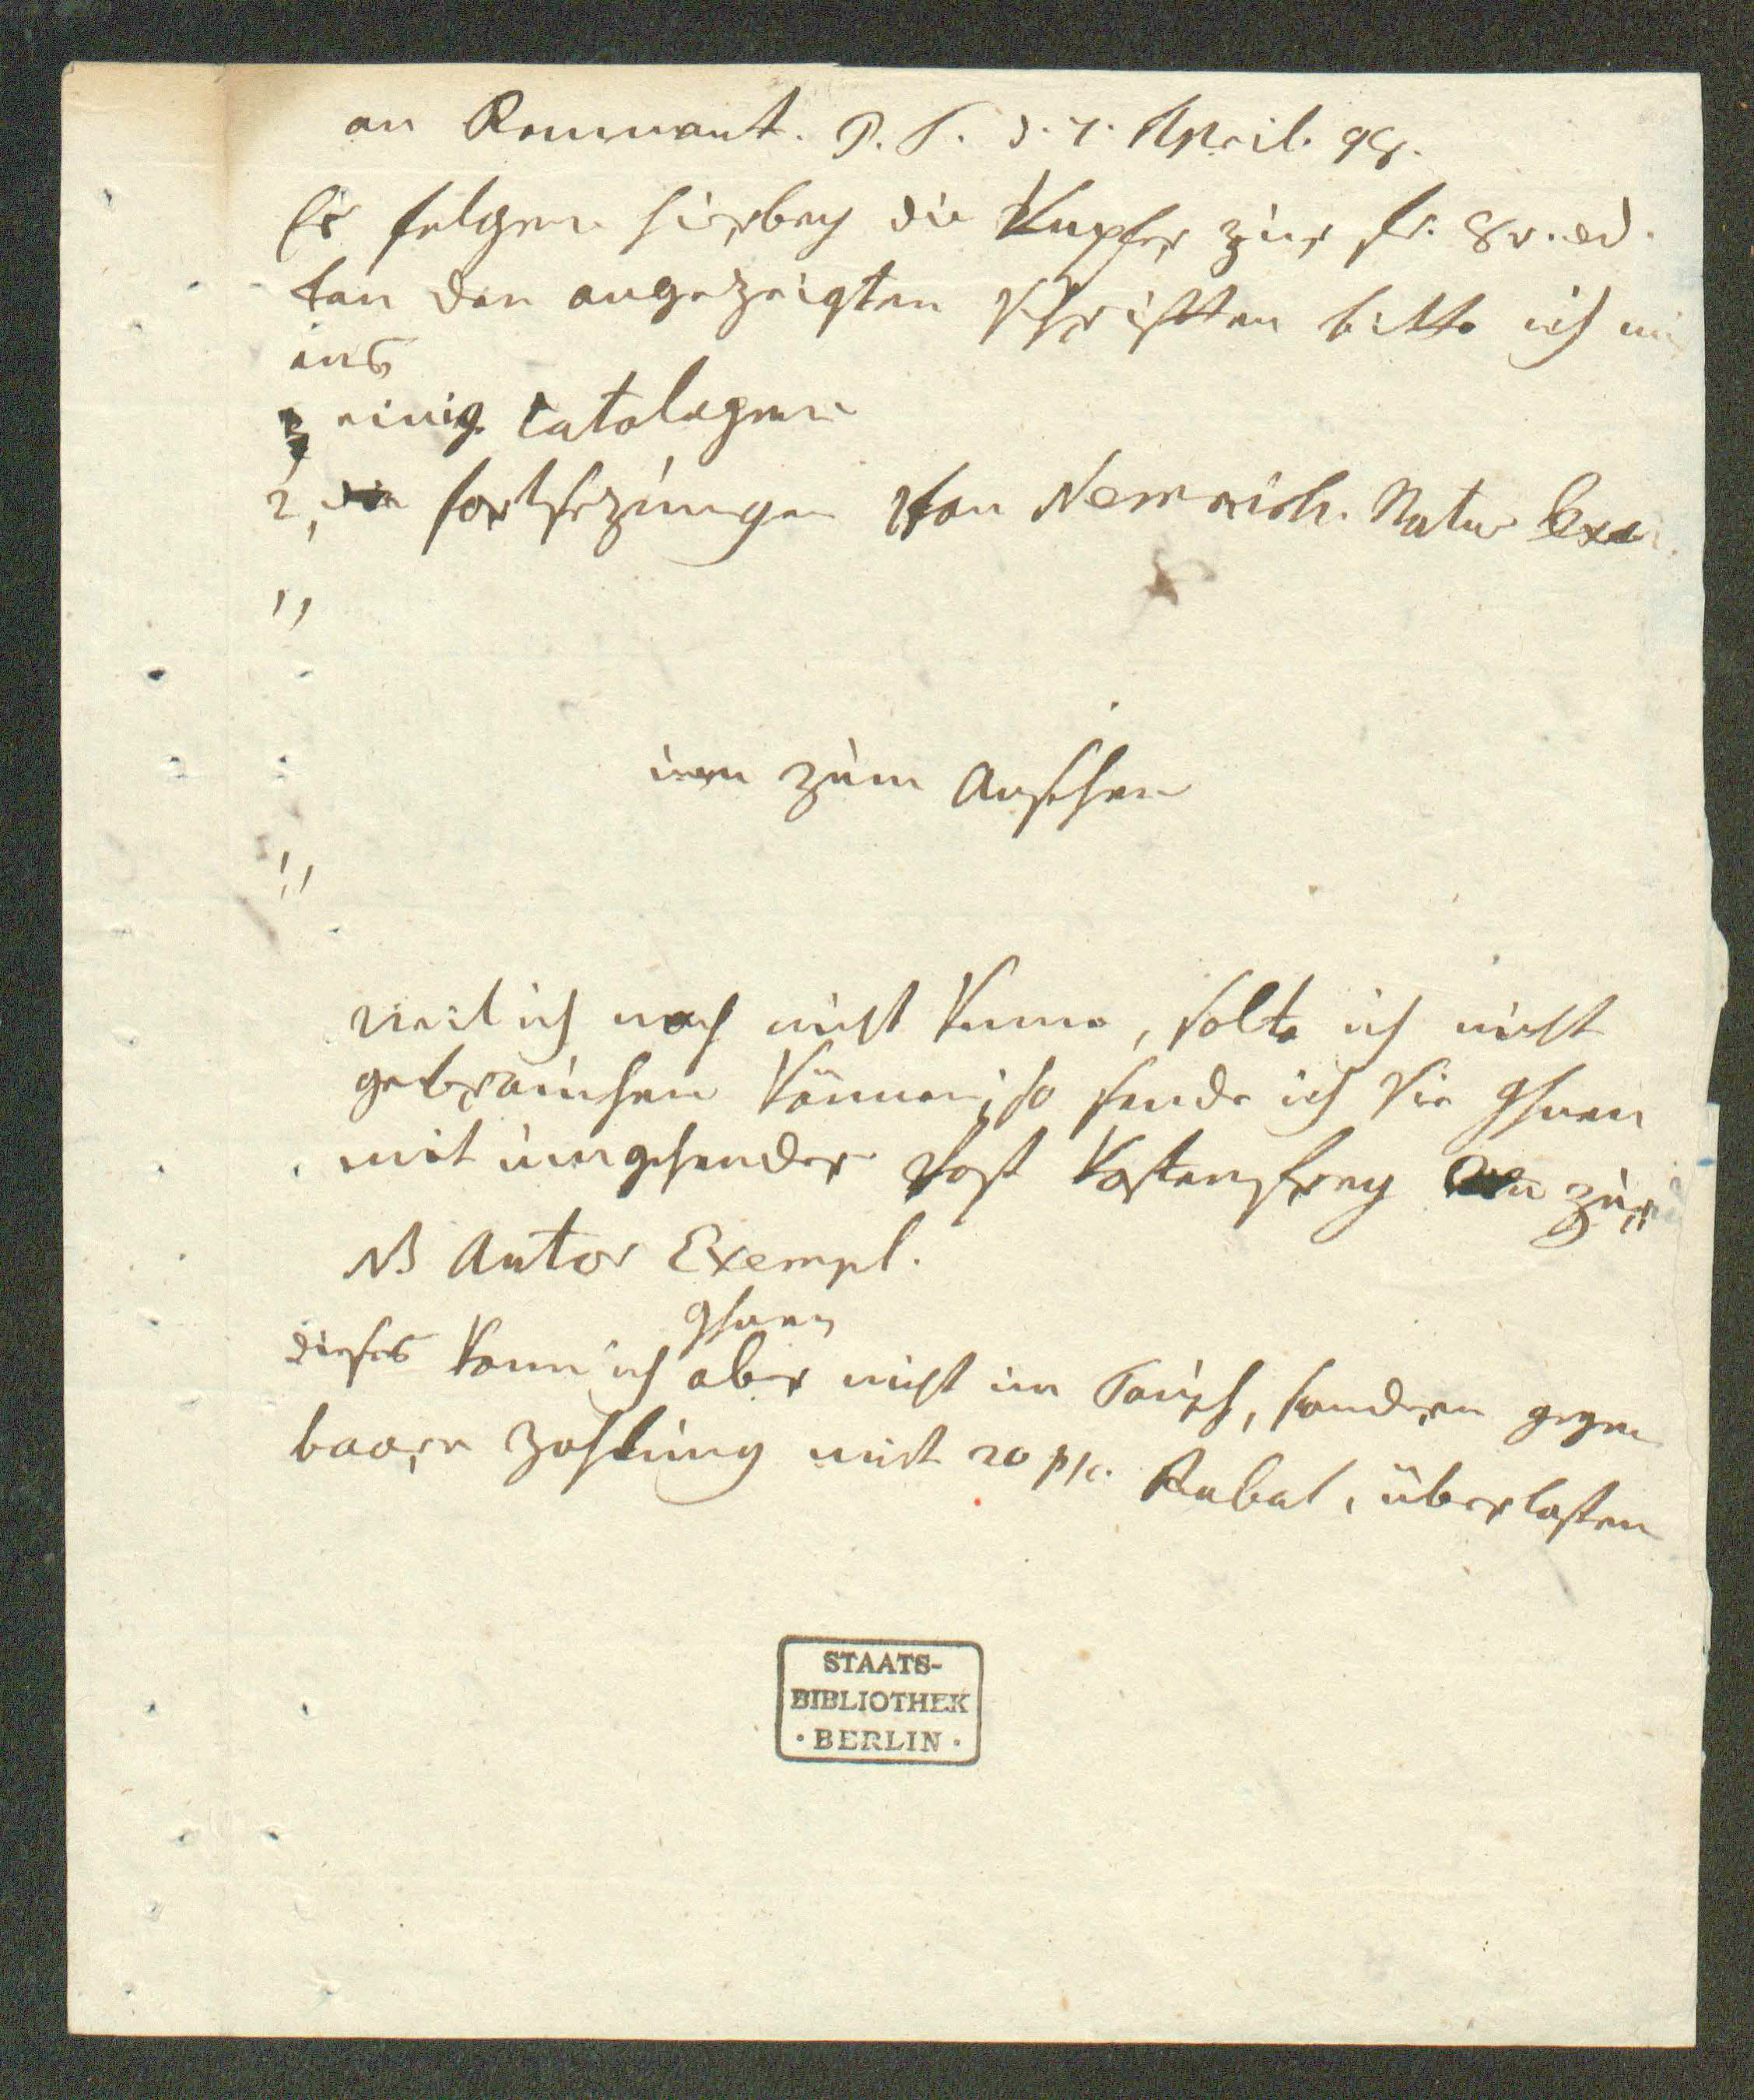 an Remnant. P. T. d. 7. April. 98.
Es folgen hierbey die Kupfer zur fr. 8v. ed.
Von den angezeigten Schriften bitte ich mir
aus
einig. Catalogen
2, die Fortsezungen von Nemnich. Natur Lexic.
,,
nun zum Ansehen
,,
weil ich noch nicht kenne, solte ich nicht
gebrauchen können; so sende ich sie Ihnen
mit umgehender Post kostenfrey zurück
NB Autor Exempl.
Ihnen
dieses kann ich aber nicht im Tausch, sondern gegen
baare Zahlung mit 20 p/c. Rabat, überlassen
STAATS-
BIBLIOTHEK
· BERLIN ·